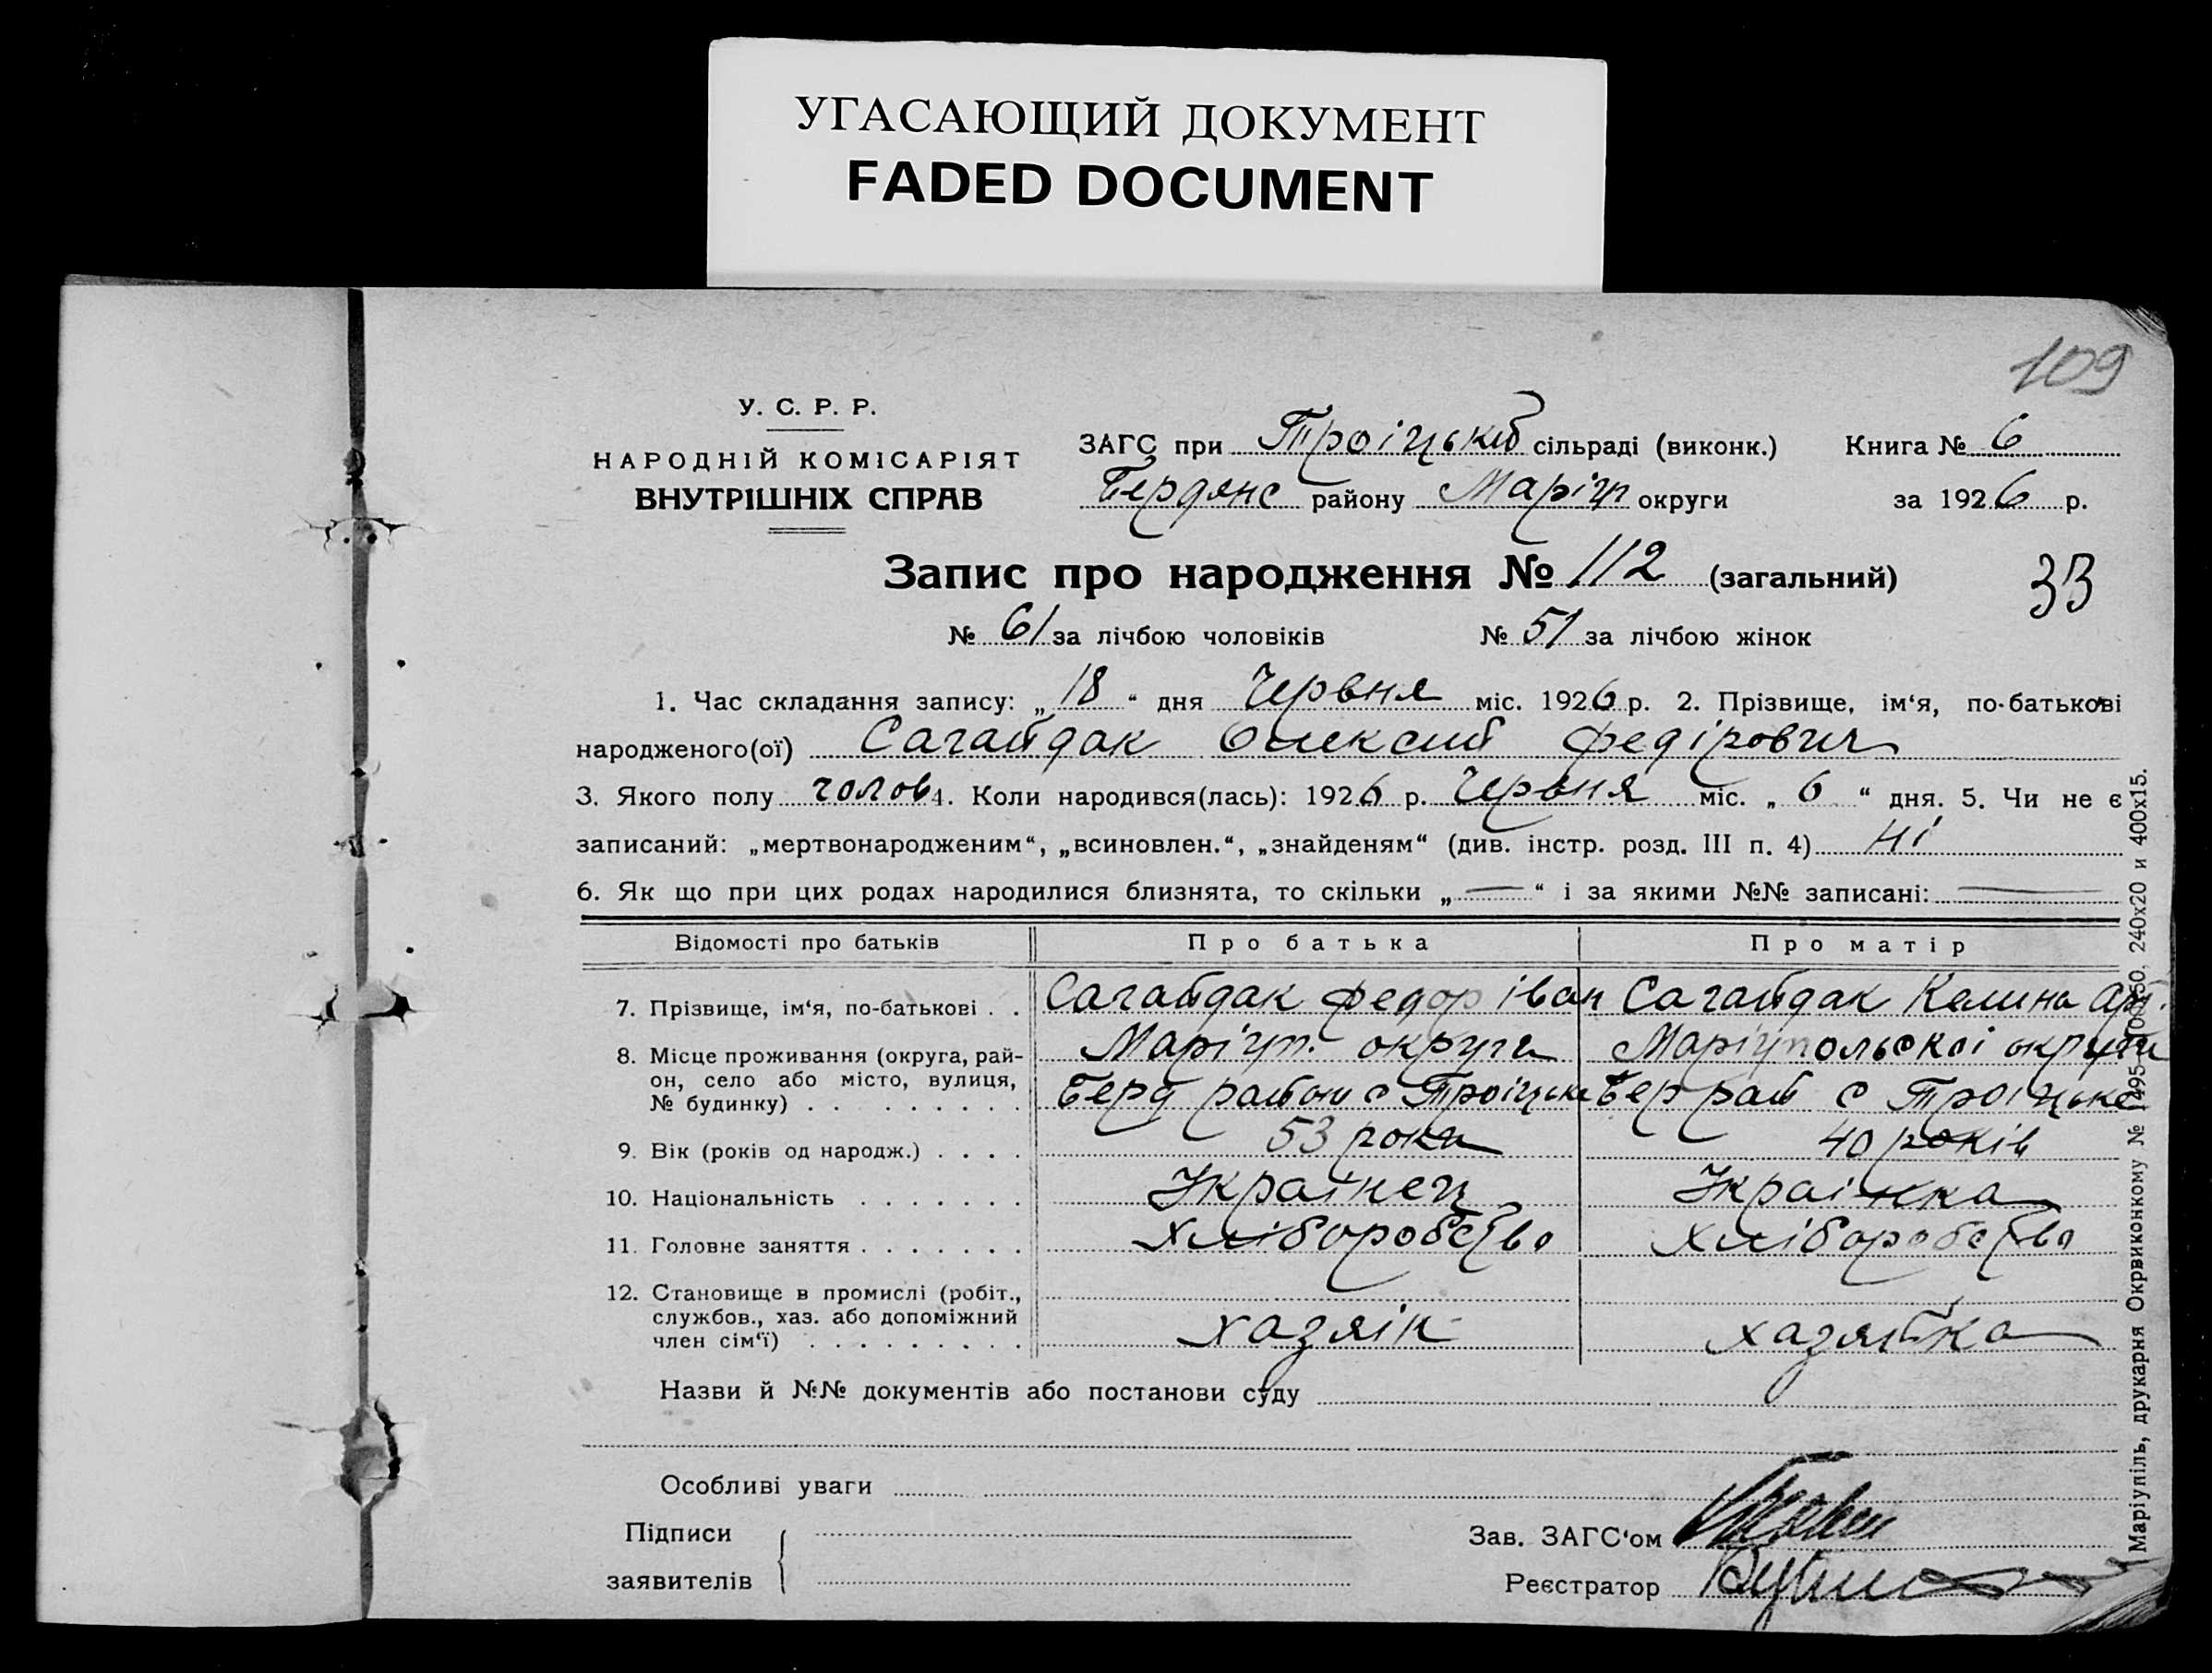 УГАСАЮЩИЙ ДОКУМЕНТ
FADED DOCUMENT
109
У. С. Р. Р.
НАРОДНІЙ КОМІСАРІЯТ
ВНУТРІШНІХ СПРАВ
ЗАГС при Троіцькій сільраді (виконк.) Книга № 6
Бердянс району Маріуп округи за 1926 р.
Запис про народження № 112 (загальний)
33
№ 61 за лічбою чоловіків № 51 за лічбою жінок
1. Час складання запису: „18“ дня Червня міс. 1926 р. 2. Прізвище, ім‘я, по-батькові
народженого(ої) Сагайдак Олексій Федірович
3. Якого полу чолов 4. Коли народився(лась): 1926 р. Червня міс. „6“ дня. 5. Чи не є
записаний: „мертвонародженим“, „всиновлен.“, „знайденям“ (див. інстр. розд. III п. 4) Ні
6. Як що при цих родах народилися близнята, то скільки „—“ і за якими №№ записані: —
Відомості про батьків Про батька Про матір
7. Прізвище, ім‘я, по-батькові . . Сагайдак Федор Іван Сагайдак Келина
8. Місце проживання (округа, рай- Маріуп. округи Маріупольскоі округи
он, село або місто, вулиця, Берд район с Троіцьке Бер рай с Троіцьке
№ будинку) . . . . . . . . .
9. Вік (років од народж.) . . . . 53 роки 40 років
10. Національність . . . . . . . Украінец Украінка
11. Головне заняття . . . . . . . Хліборобство Хліборобство
12. Становище в промислі (робіт.,
службов., хаз. або допоміжний хазяін хазяйка
член сім‘ї) . . . . . . . . .
Назви й №№ документів або постанови суду
Особливі уваги
Підписи
заявителів
Зав. ЗАГС‘ом
Реєстратор
Маріупіль, друкарня Окрвиконкому № 1495 240х20 и 400х15.